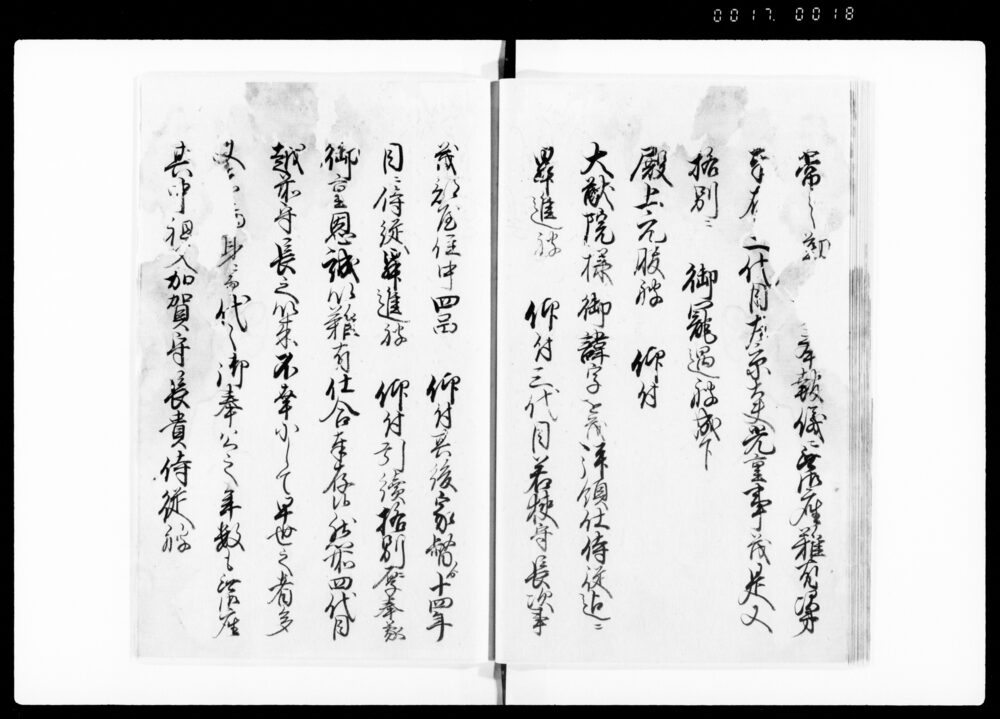 0017.0018
常之勤
奉報儀ニ無御座難有次第
奉存候二代目左京大夫光重事茂是又
格別ニ 御寵遇被成下
殿上元服被 仰付
大猷院様御諱字をも拝領仕侍従迄ニ
昇進被 仰付三代目若狭守長次事
茂部屋住中四品 仰付其後家督より十四年
目ニ侍従昇進被 仰付引続格別厚奉蒙
御重恩誠以難有仕合奉存候然所四代目
越前守長之以来不幸ニして早世之者多
代々御奉公之年数も無御座
其中祖父加賀守長貴侍従被